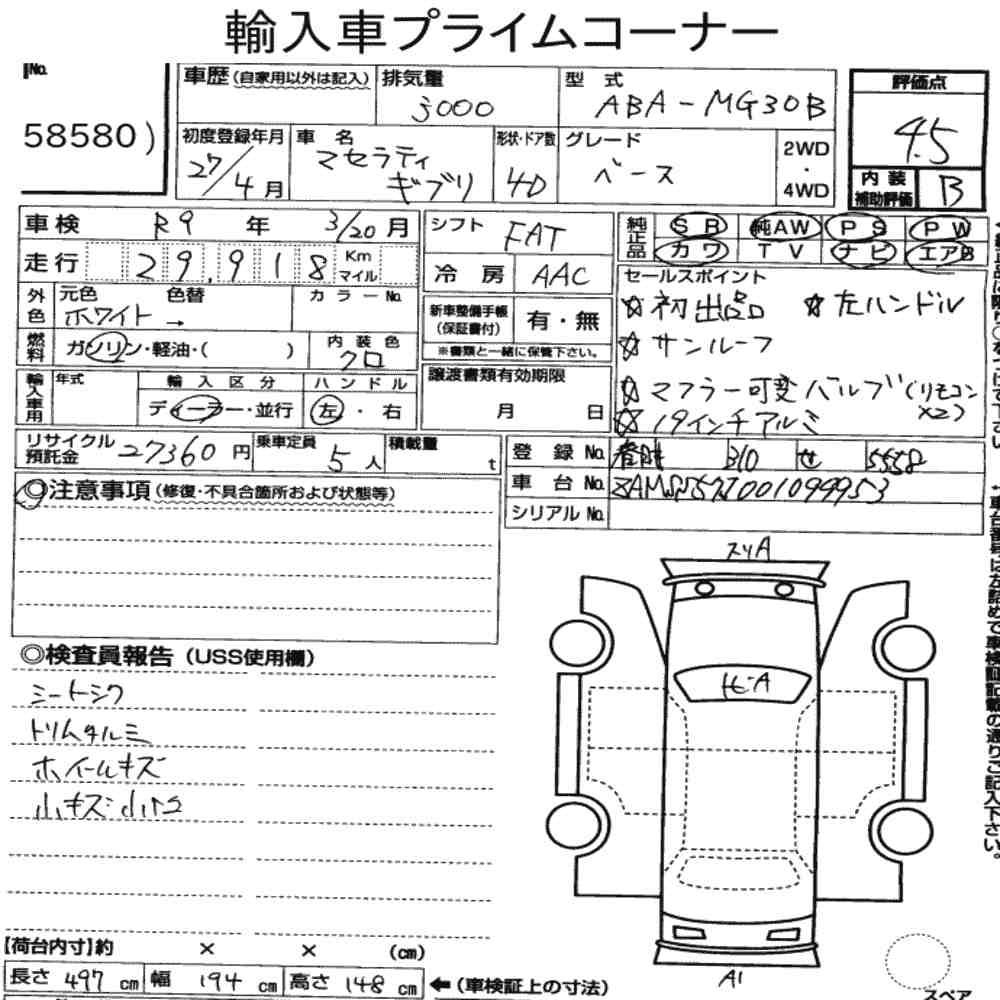 輸入車プライムコーナー
No.
58580)
車歴(自家用以外は記入)
排気量
3000
型 式
ABA-MG30B
評価点
4.5
内装補助評価
B
初度登録年月
27/4月
車 名
マセラティ
ギブリ
形状・ドア数
4D
グレード
ベース
2WD
・
4WD
車検 R9 年 3/20月
走行 29,918 Km マイル
外色 元色 色替
ホワイト →
カラーNo.
燃料 ガソリン・軽油・( )
内装色
クロ
シフト FAT
冷房 AAC
新車整備手帳(保証書付) 有・無
※書類と一緒に保管下さい。
純正品 SR 純AW PS PW
カワ TV ナビ エアB
セールスポイント
☆初出品 ☆左ハンドル
☆サンルーフ
☆マフラー可変バルブ(リモコン
×2)
☆19インチアルミ
輸入車用 年式
輸入区分
ディーラー・並行
ハンドル
左・右
譲渡書類有効期限
月 日
リサイクル預託金 27360円
乗車定員 5人
積載量 t
登録No. 310 せ 5558
車台No.
シリアルNo.
注意事項(修復・不具合箇所および状態等)
◎検査員報告(USS使用欄)
シートシワ
ホイールキズ
スリA
A1
スペア
【荷台内寸】約 × × (cm)
長さ 497 cm 幅 194 cm 高さ 148 cm ←(車検証上の寸法)
車台番号は左詰めで車検証記載の通りご記入下さい。